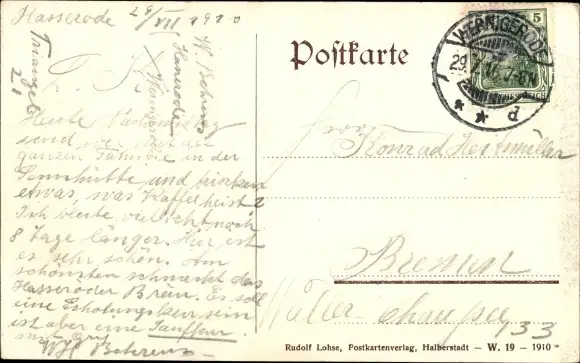 Hasserode 29/VII 1910
W. Behrens
Hasserode
Triangel
21
L. K.
Heute Nachmittag
send wir mit der
ganzen Familie in der
Sennhütte und trinken
etwas, was Kaffe heist
Ich bleibe vielleicht noch
8 Tage länger. Hier ist
es sehr schön. Am
schönsten schmeckt das
Hasseroder Bräu. Es soll
eine Erholungskur sein
ist aber eine Saufkur.
W. Behrens
Postkarte
WERNIGERODE
29.7.10. 7-8N
* * d
5
Herrn
Konrad
Bremen
Chaussee 133
Rudolf Lohse, Postkartenverlag, Halberstadt — W. 19 - 1910